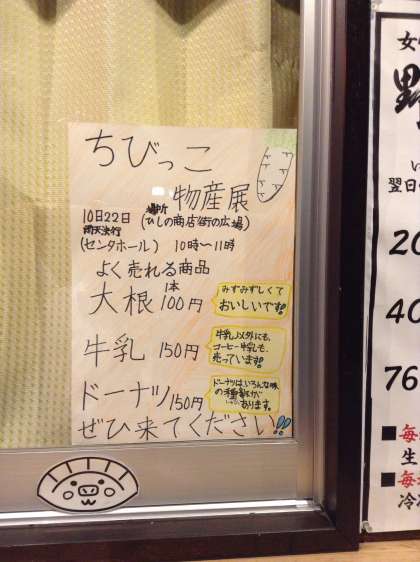 ちびっこ
物産展
10日22日 場所(ひしの商店街の広場)
雨天決行
(センタホール) 10時〜11時
よく売れる商品
大根 1本100円
みずみずしくて
おいしいです!!
牛乳 150円
牛乳以外にも、
コーヒー牛乳も、
売っています!!
ドーナツ 150円
ドーナツはいろんな味
の種類が
あります。
ぜひ来てください!!
女
翌日
20
40
76
■毎
生
■毎
冷